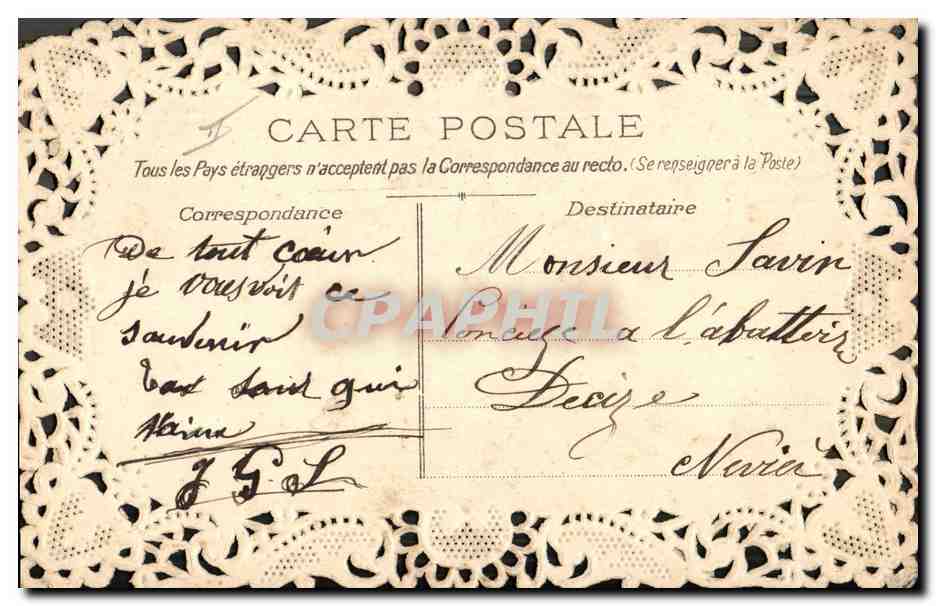 CARTE POSTALE
Tous les Pays étrangers n'acceptent pas la Correspondance au recto. (Se renseigner à la Poste)
Correspondance
De tout cœur
je vous voit ce
souvenir
ta sœur qui
t'aime
J G. S
Destinataire
Monsieur Savin
a l'abattoir
Decize
Nevier
CPAPHIL